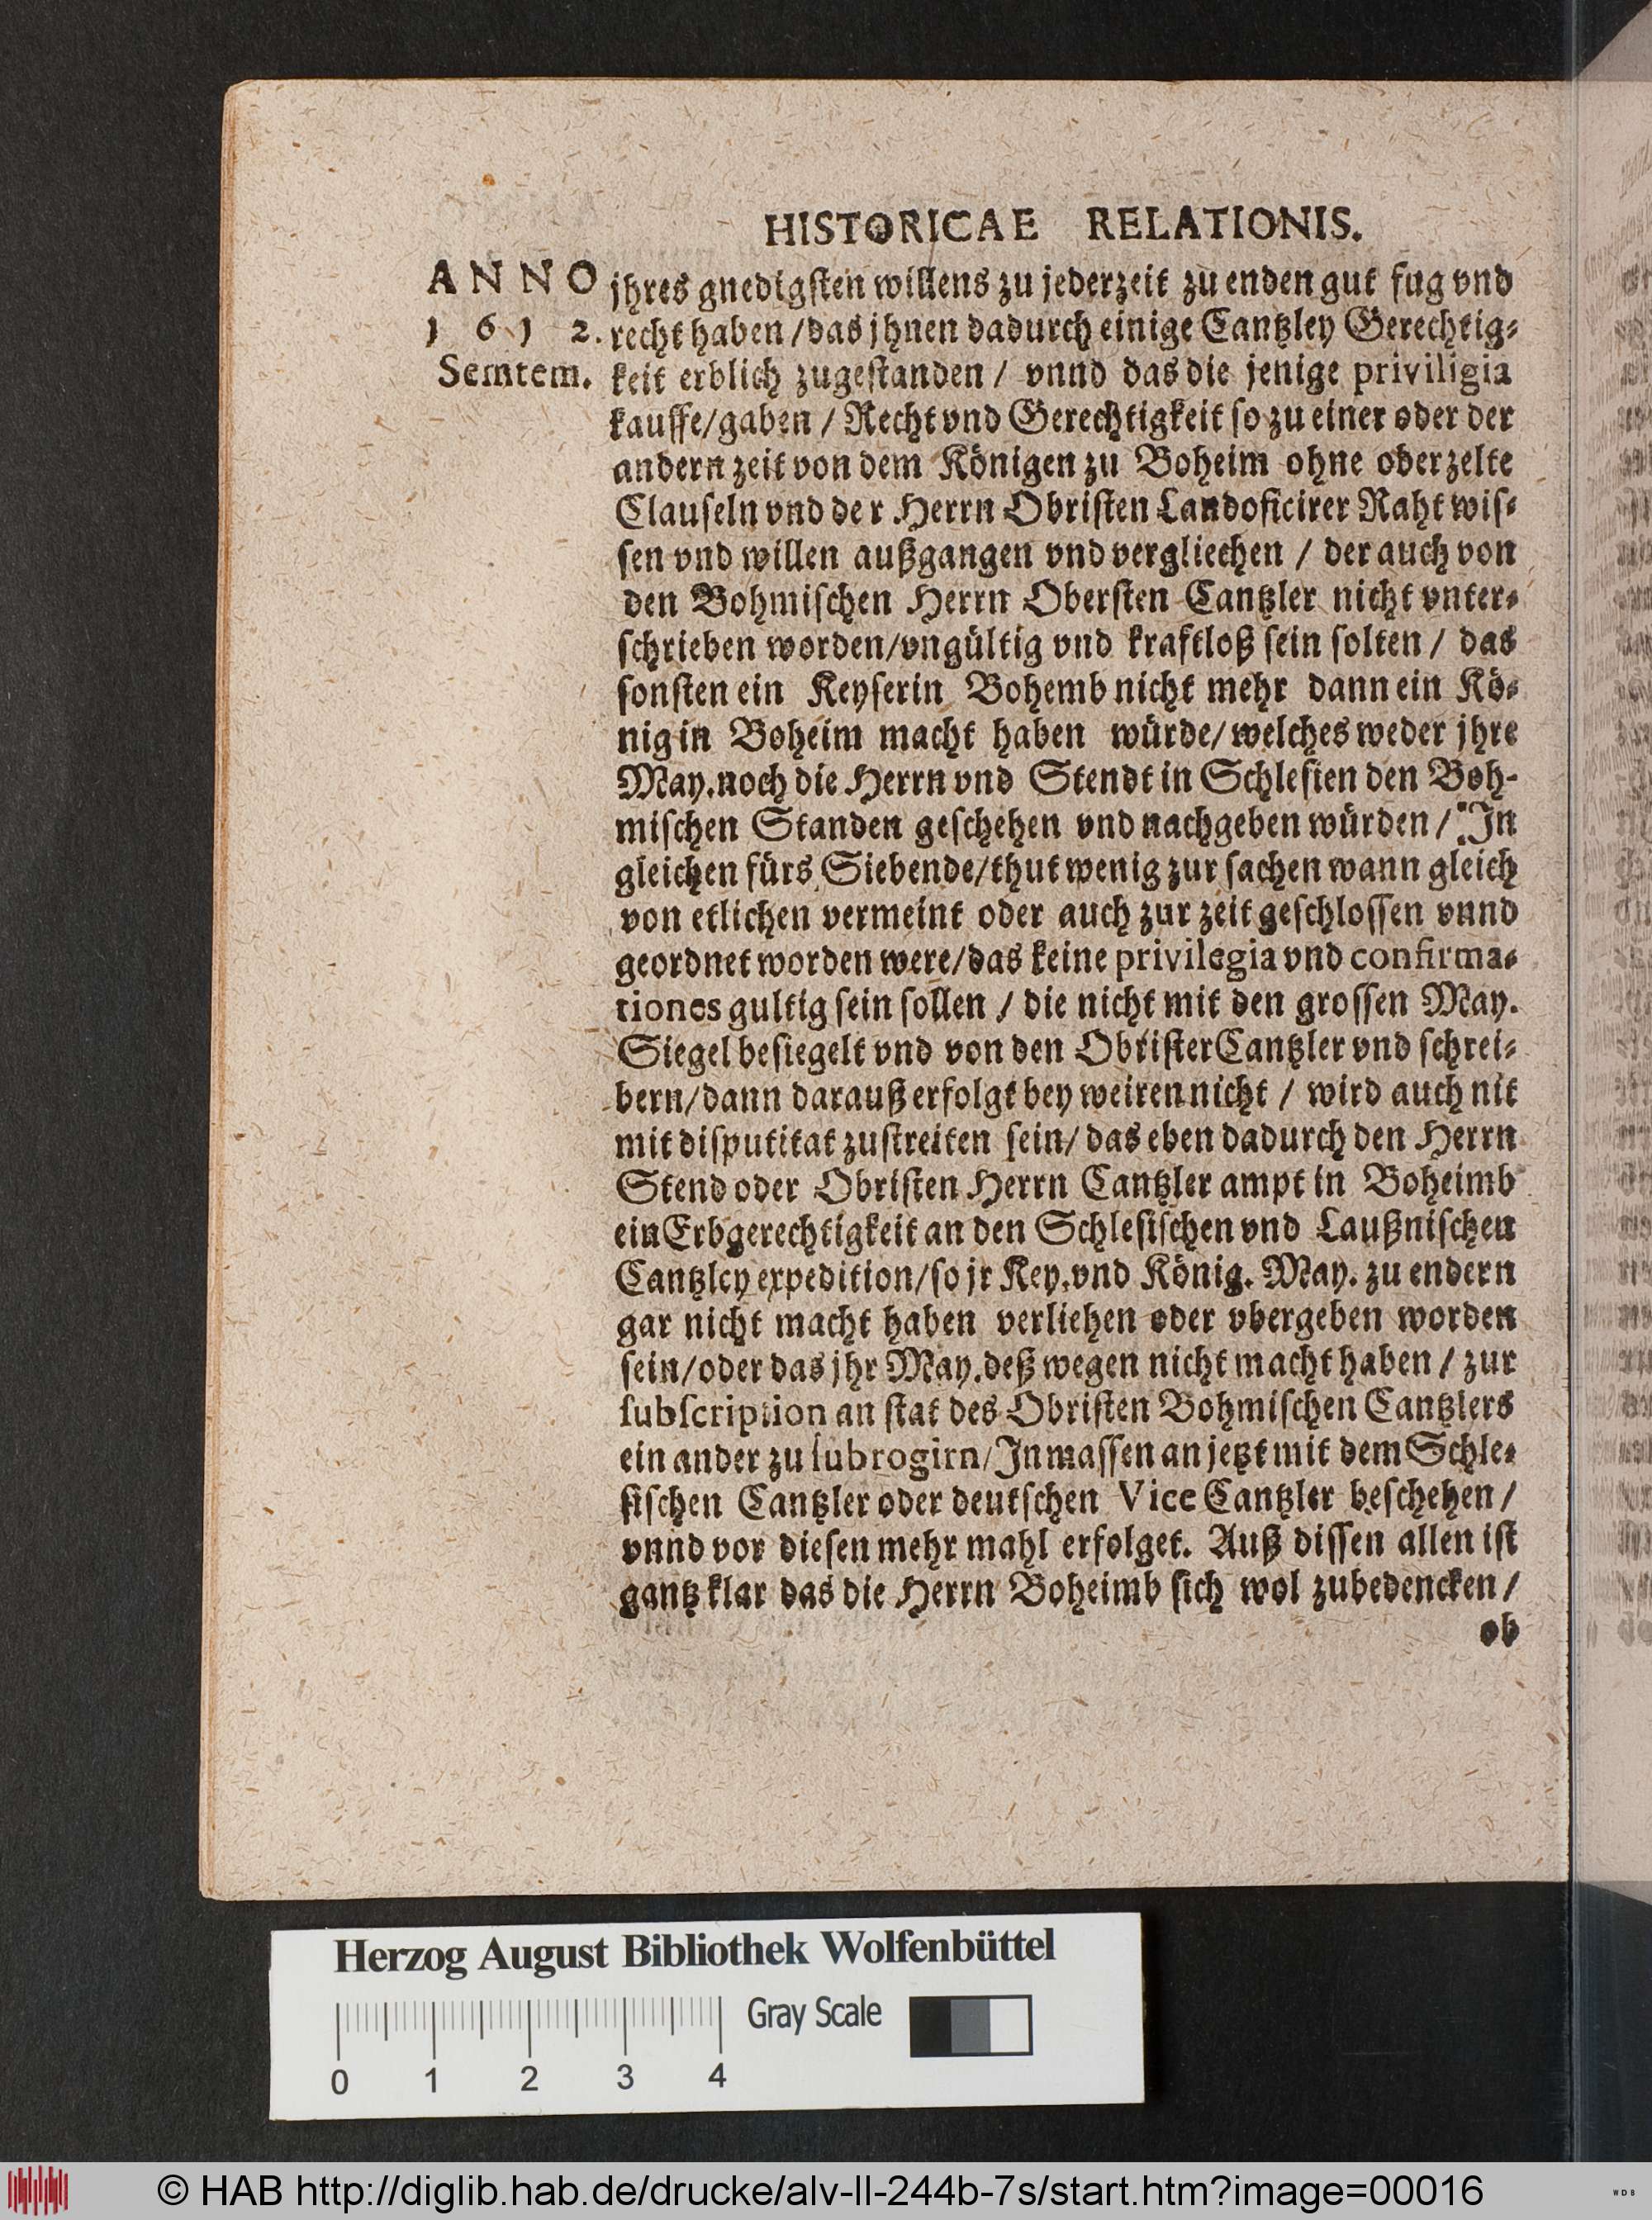 HISTORICAE RELATIONIS.
ANNO jhres gnedigsten willens zu jederzeit zu enden gut fug vnd
1 6 1 2. recht haben / das jhnen dadurch einige Cantzley Gerechtig⸗
Semtem. keit erblich zugestanden / vnnd das die jenige priviligia
kauffe / gaben / Recht vnd Gerechtigkeit so zu einer oder der
andern zeit von dem Königen zu Boheim ohne oberzelte
Clauseln vnd der Herrn Obristen Landoficirer Raht wis⸗
sen vnd willen außgangen vnd vergliechen / der auch von
den Bohmischen Herrn Obersten Cantzler nicht vnter⸗
schrieben worden / vngültig vnd kraftloß sein solten / das
sonsten ein Keyserin Bohemb nicht mehr dann ein Kö⸗
nig in Boheim macht haben würde / welches weder jhre
May. noch die Herrn vnd Stendt in Schlesien den Boh-
mischen Standen geschehen vnd nachgeben würden / In
gleichen fürs Siebende / thut wenig zur sachen wann gleich
von etlichen vermeint oder auch zur zeit geschlossen vnnd
geordnet worden were / das keine privilegia vnd confirma⸗
tiones gultig sein sollen / die nicht mit den grossen May.
Siegel besiegelt vnd von den Obrister Cantzler vnd schrei⸗
bern / dann darauß erfolgt bey weiren nicht / wird auch nit
mit disputitat zustreiten sein / das eben dadurch den Herrn
Stend oder Obristen Herrn Cantzler ampt in Boheimb
ein Erbgerechtigkeit an den Schlesischen vnd Laußnischen
Cantzley expedition / so jr Key. vnd König. May. zu endern
gar nicht macht haben verliehen oder vbergeben worden
sein / oder das jhr May. deß wegen nicht macht haben / zur
subscription an stat des Obristen Bohmischen Cantzlers
ein ander zu subrogirn / Inmassen an jetzt mit dem Schle⸗
sischen Cantzler oder deutschen Vice Cantzler beschehen /
vnnd vor diesen mehr mahl erfolget. Auß dissen allen ist
gantz klar das die Herrn Boheimb sich wol zubedencken /
ob
Herzog August Bibliothek Wolfenbüttel
Gray Scale
0 1 2 3 4
© HAB http://diglib.hab.de/drucke/alv-ll-244b-7s/start.htm?image=00016
WDB